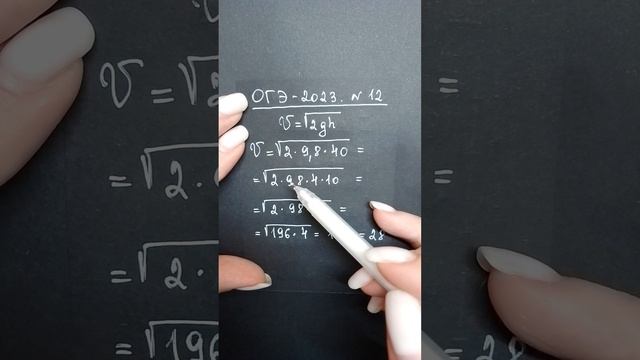 ОГЭ-2023. №12
V=√2gh
V=√2·9,8·40 =
=√2·9,8·4·10 =
=√2·98 =
=√196·4 = = 28